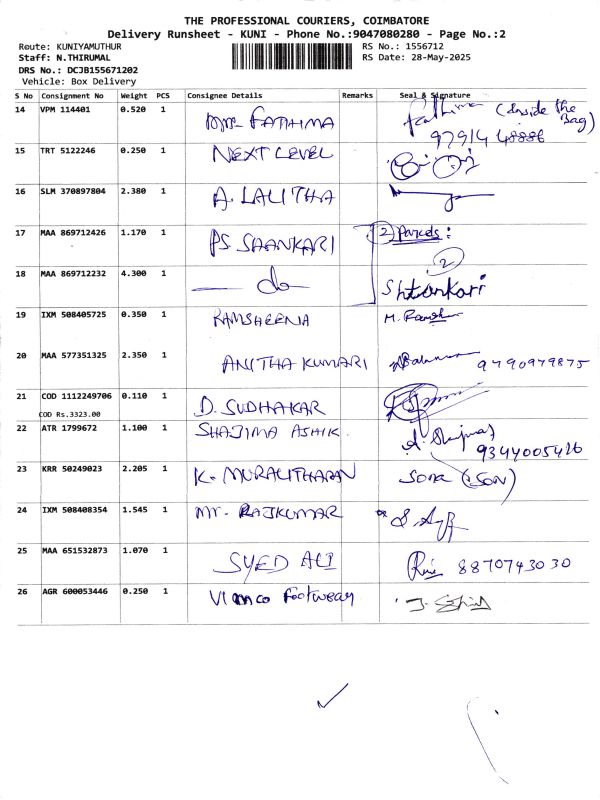 THE PROFESSIONAL COURIERS, COIMBATORE
Delivery Runsheet - KUNI - Phone No.:9047080280 - Page No.:2
Route: KUNIYAMUTHUR RS No.: 1556712
Staff: N.THIRUMAL RS Date: 28-May-2025
DRS No.: DCJB155671202
Vehicle: Box Delivery
S No Consignment No Weight PCS Consignee Details Remarks Seal & Signature
14 VPM 114401 0.520 1 FATHIMA Fathima (Inside the Bag)
97914 48886
15 TRT 5122246 0.250 1 NEXT LEVEL
16 SLM 370897804 2.380 1 A. LALITHA
17 MAA 869712426 1.170 1 PS. SAANKARI 2 Parcels:
2
18 MAA 869712232 4.300 1 — do Shankari
19 IXM 508405725 0.350 1 RAMSHEENA M. Ramsh
20 MAA 577351325 2.350 1 ANITHA KUMARI 9790979875
21 COD 1112249706 0.110 1 D. SUDHAKAR
COD Rs.3323.00
22 ATR 1799672 1.100 1 SHAJIMA ASHIK.
9344005426
23 KRR 50249023 2.205 1 K. MURALITHARAN Sona (SON)
24 IXM 508408354 1.545 1 Mr. RAJKUMAR
25 MAA 651532873 1.070 1 SYED ALI 8870743030
26 AGR 600053446 0.250 1 Vimco Footwear